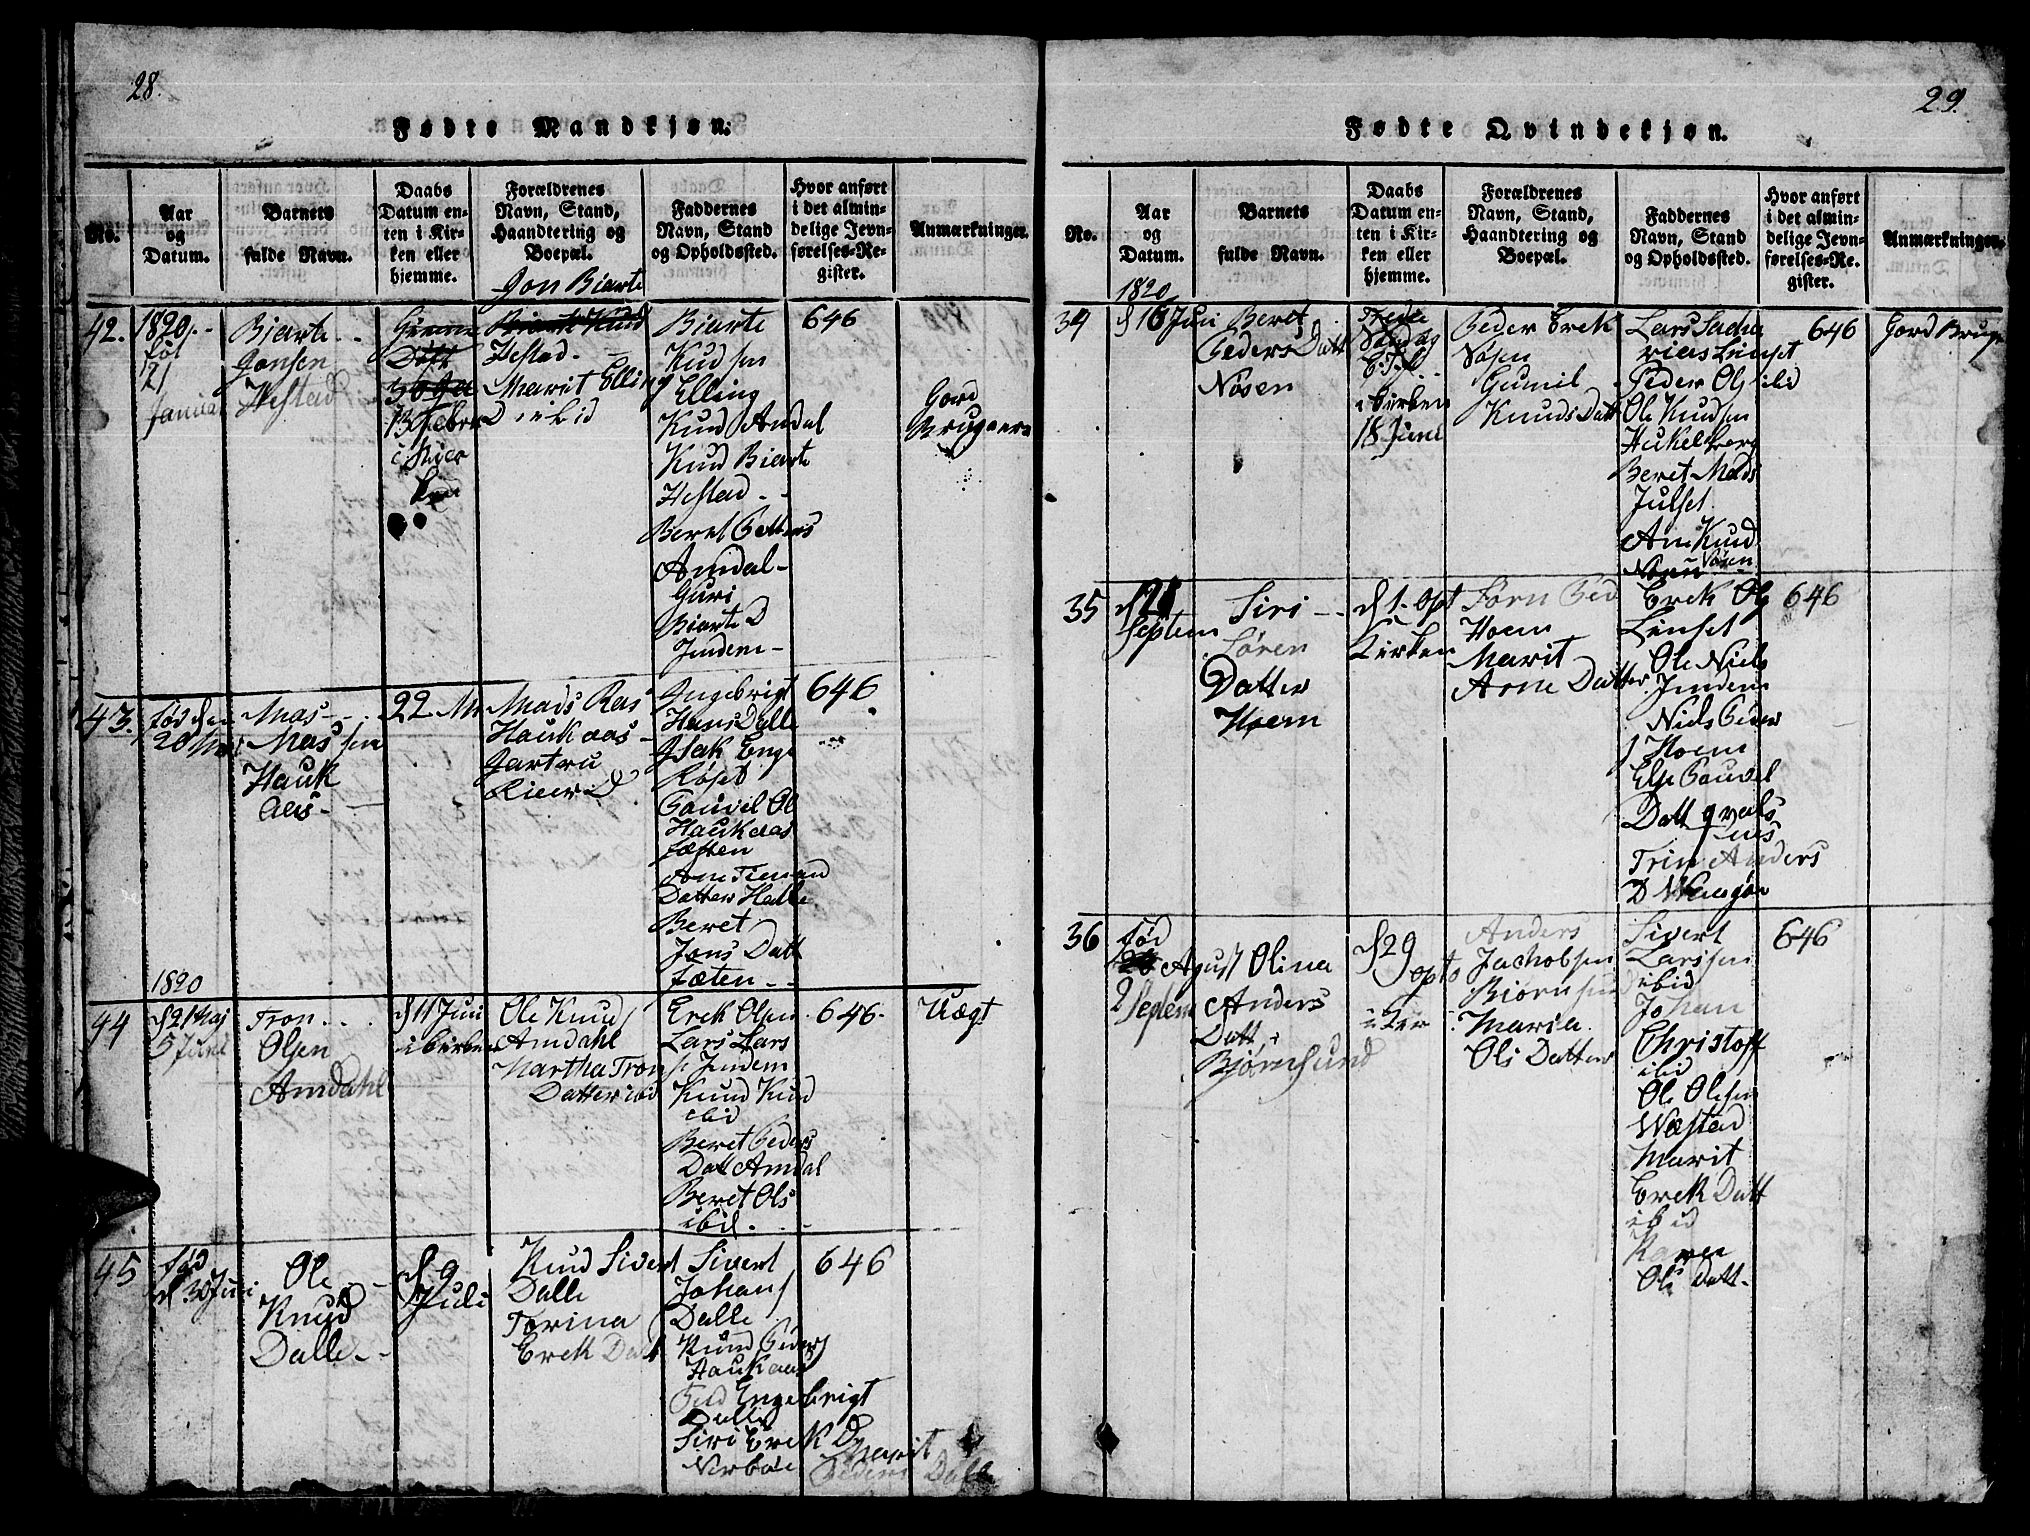 28.
Fødte Mandkjøn.
No.
Aar
og
Datum.
Barnets
fulde Navn.
Daabs
Datum en-
ten i Kir-
ken eller
hjemme.
Forældrenes
Navn, Stand,
Haandtering og
Boepæl.
Faddernes
Navn, Stand
og Opholdssted.
Hvor anført
i det almin-
delige Jevn-
førelses-Re-
gister.
Anmærkninger.
42.
1820.
føt
21
Januar
Biarte
Jonsen
Hestad
13 Febr
i Kier
ken
Jon Biarte
Hestad
Marit Elling
D ibid
Biarte
Kudsen
Elling
Kud Amdal
Kud Biarte
Hestad
Beret Petters
Amdal
Guri
Biarte D
Jndem
646
Gord
Brugaers
43.
fød den
20 Mai
Mas
Massen
Hauk
aas
22 M
Mads Ras
Haukaas
Jartru
D
Jngebrigt
Hans Dalle
Jsak Enge
Røset
Pouvel Ol
Haukaas
fæften
Ane
Datter Halle
Beret
Jons Datt
fæten
646
1820
44
d 21 Maj
5 Juni
Tron
Olsen
Amdahl
d 11 Juni
i kirken
Ole Knud
Amdahl
Martha Tron
Datter ibid
Erek Olsen
Lars Lars
Jndem
Knud Knud
ibid
Beret Peders
Datt Amdal
Beret Ols
ibid
646.
Uægt
45
fød
d. 30 Juni
Ole
Knud
Dalle
d 9
Juli
Knud Sivert
Dalle
Torina
Erek Datt
Sivert
Johans
Dalle
Knud Peders
Haukaas
Engebrigt
Dalle
Siri Erek D
Nerbøe
Marit
Peders Dalle
646
29.
Fødte Qvindekjøn.
No.
Aar
og
Datum.
Barnets
fulde Navn.
Daabs
Datum en-
ten i Kir-
ken eller
hjemme.
Forældrenes
Navn, Stand,
Haandtering og
Boepæl.
Faddernes
Navn, Stand
og Opholdssted.
Hvor anført
i det almin-
delige Jevn-
førelses-Re-
gister.
Anmærkninger.
1820
34
d 16 Juni
Beret
Peders Datt
Nøsen
Søndag
i kirken
18 Juni
Peder Erek
Nøsen
Gunil
Knuds Datt
Lars Sacha
rias Linset
Peder Ols ibid
Ole Knudsen
Hukelberg
Beret Mads
Julset
Ane Knud
Nøsen
646
Gord Brug
35
d 21
Septem
Siri
Søren
Datter
Hoem
d 1. Opt
Kirken
Sørn Ped
Hoem
Marit
Arne Datter
Erek Ols
Linset
Ole Niels
Jndem
Niels Peder
Hoem
Else Pouvel
Datt qvals
nes
Trin Anders
D
646
36
fød
Agust
2 Septem
Olina
Anders
Datt
Bjørnsund
d 29
opto
i Kir
Anders
Jachobsen
Biørnsund
Maria
Oli Datter
Sivert
Larssen
ibid
Johan
Christoff
ibid
Ole Olesen
Wæstad
Marit
Erek Datt
ibid
Karen
Oli Datt
646